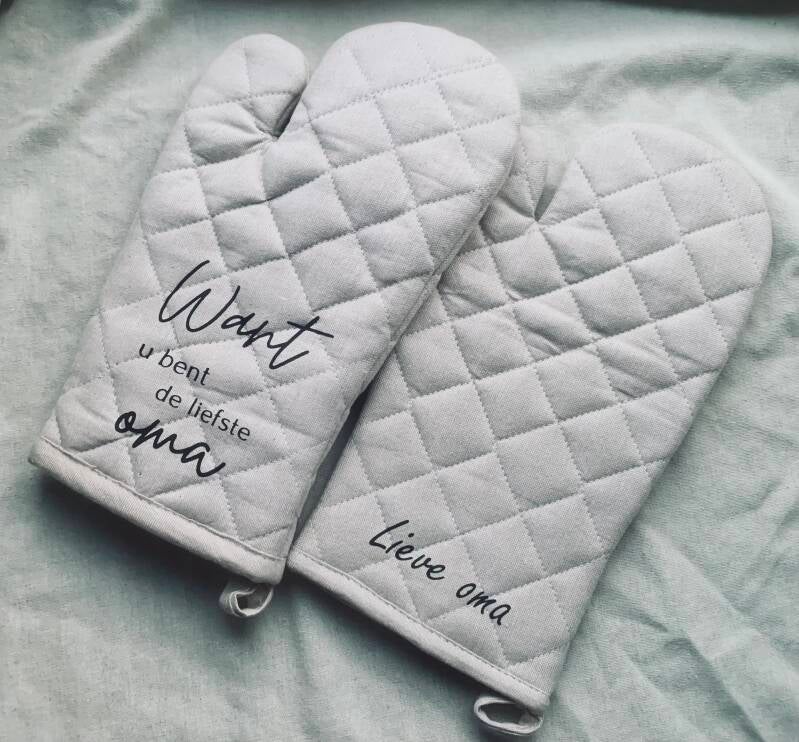 Want
u bent
de liefste
oma
Lieve oma